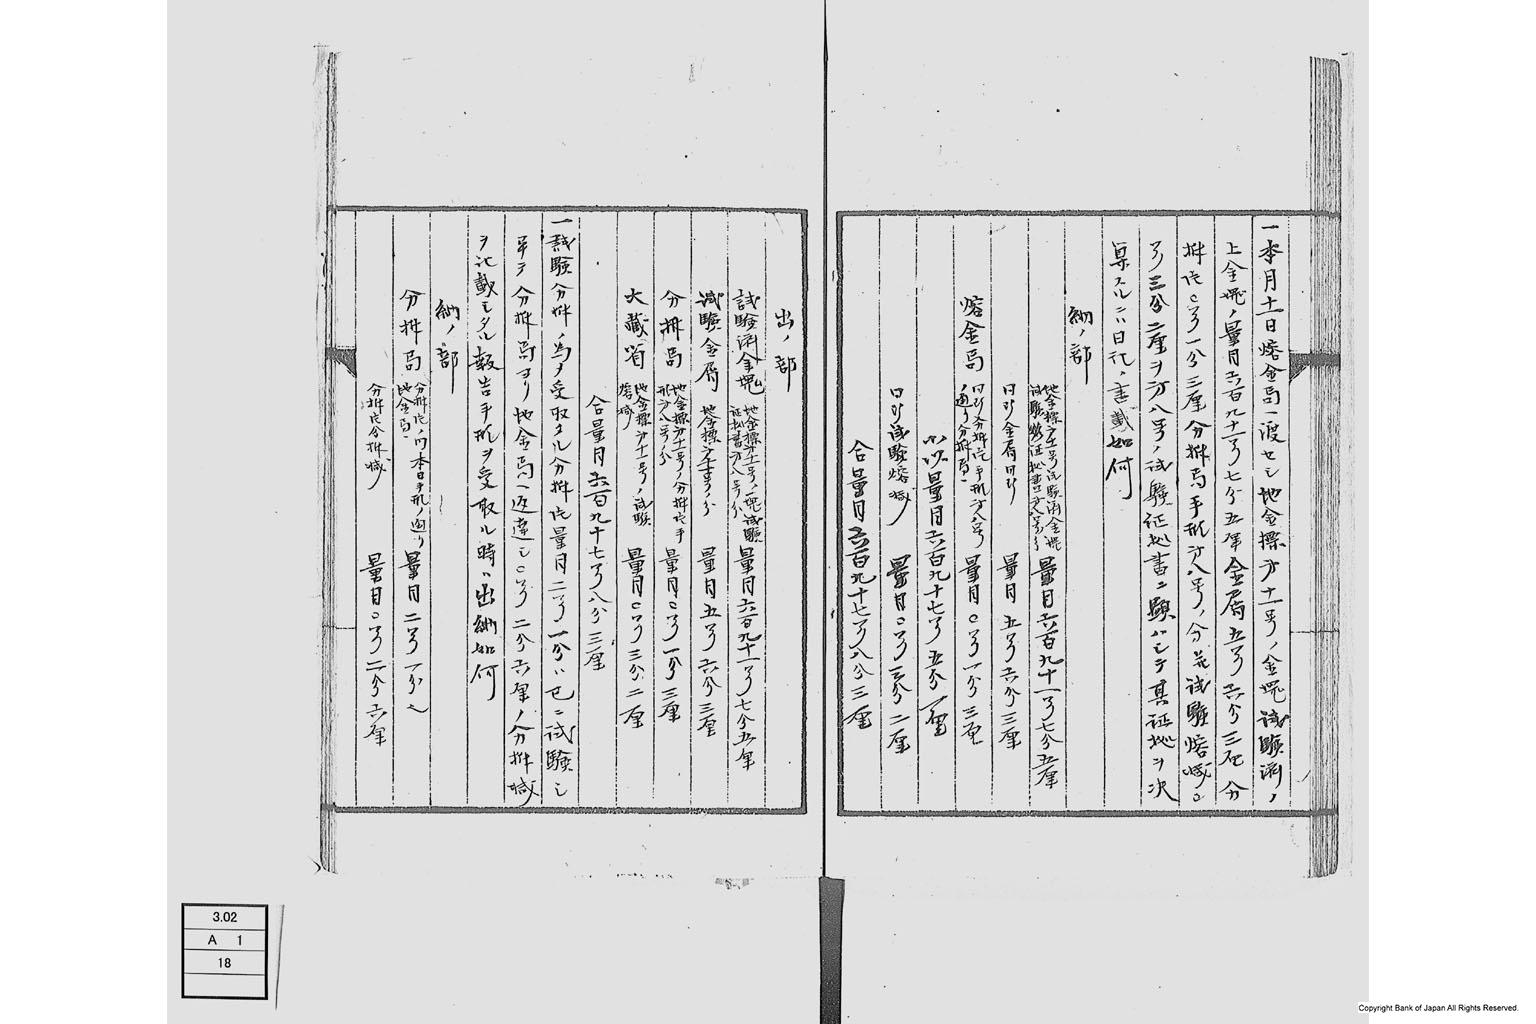 一本月十一日熔金局ヘ渡セシ地金標第十一号ノ金塊試験済ノ
上金塊ノ量目六百九十一匁七分五厘金屑五匁六分三厘分
拆片〇匁一分三厘分拆局手形第八号ノ分並試験熔減〇
匁三分二厘ヲ第八号ノ試験証拠書ニ顕ハシテ其証拠ヲ次
第スルニハ日記ノ書載如何
納ノ部
地金標第十一号試験済金塊
試験
証拠書第八号
量目六百九十一匁七分五厘
同行金屑同断
量目五匁六分三厘
熔金局
同行分拆片手形第八号
ノ通リ分拆局ヘ
量目〇匁一分三厘
小以量目六百九十七匁五分一厘
同行試験熔減
量目〇匁三分二厘
合量目六百九十七匁八分三厘
出ノ部
試験済金塊
地金標第十一号ノ塊試験
証拠書第八号ノ分
量目六百九十一匁七分五厘
試験金屑
地金標第十一号ノ分
量目五匁六分三厘
分拆局
地金標第十一号ノ分拆片手
形第八号ノ分
量目〇匁一分三厘
大蔵省
地金標第十一号ノ試験
熔減
量目〇匁三分二厘
合量目六百九十七匁八分三厘
一試験分拆ノ為メ受取タル分拆片量目二匁一分ハ已ニ試験シ
畢テ分拆局ヨリ地金局ヘ返達シ〇匁二分六厘ノ分拆減
ヲ記載シタル報告手形ヲ受取ル時ハ出納如何
納ノ部
分拆局
分拆片ノ内本日手形ノ通リ
地金局ヘ
量目二匁一分
分拆片分拆減
量目〇匁二分六厘
3.02
A 1
18
Copyright Bank of Japan All Rights Reserved.